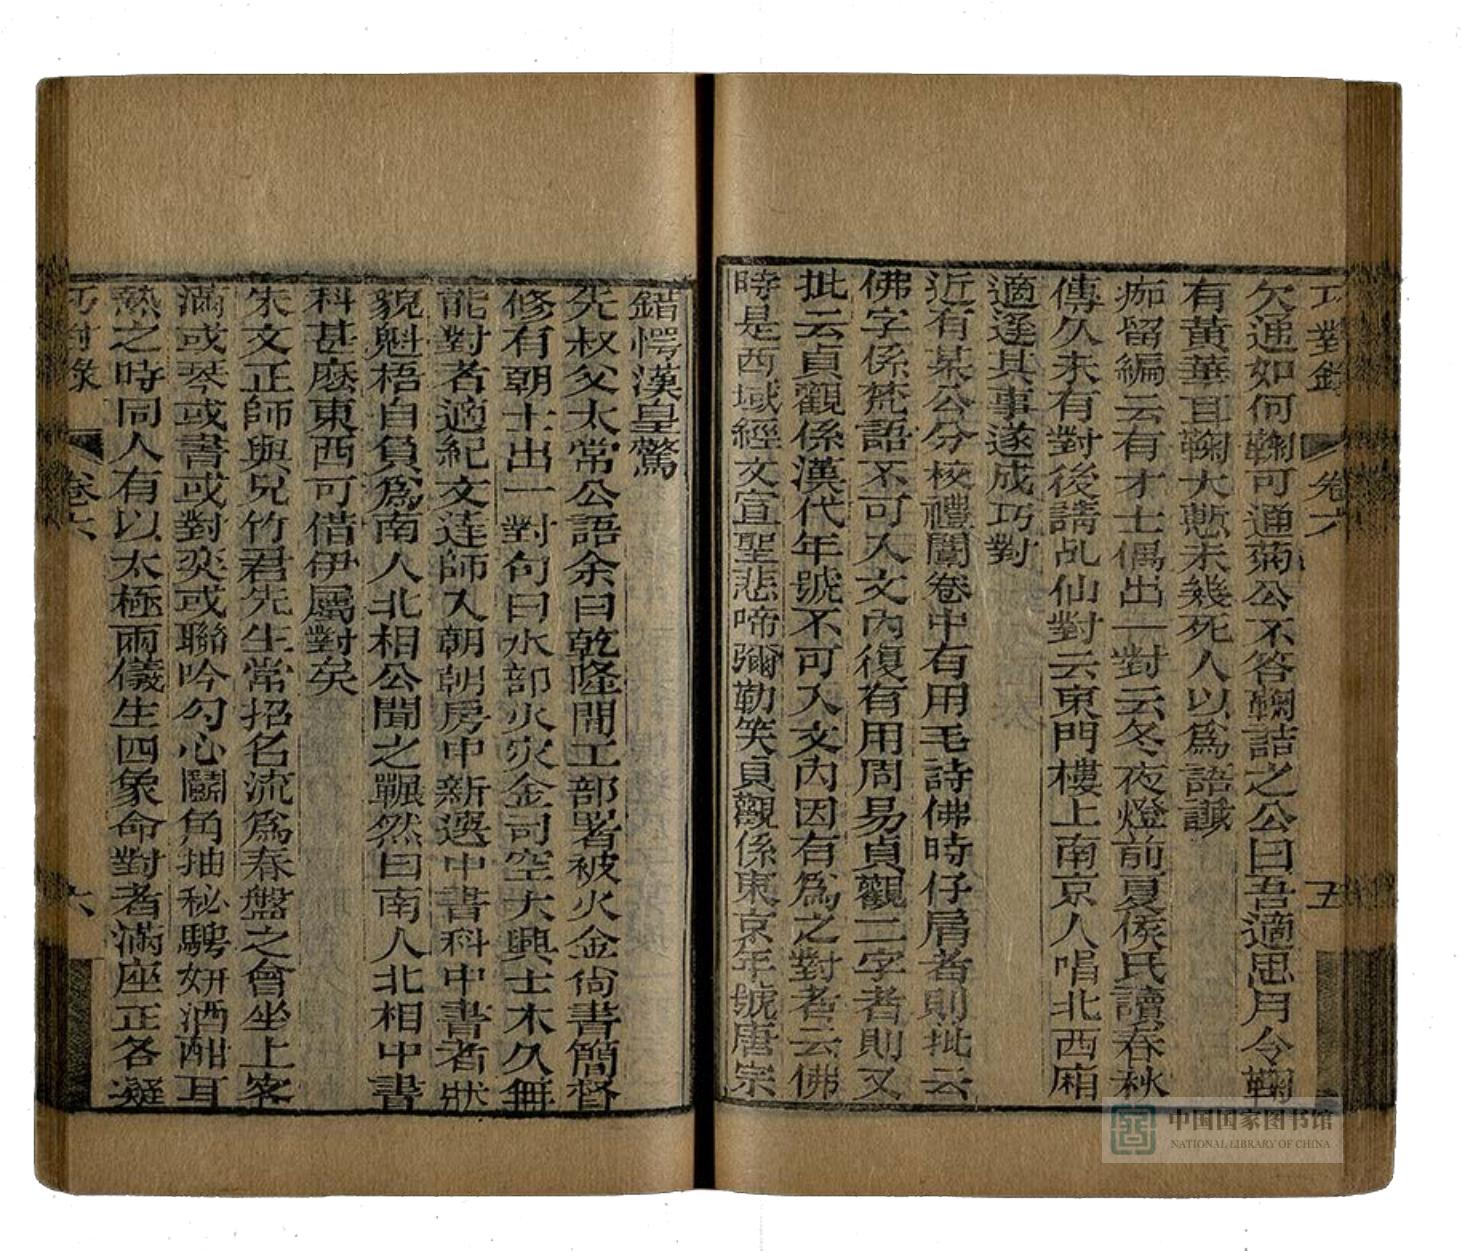 巧對錄 卷六 五
欠通如何鞠可通菊公不答鞠詰之公曰吾適思月令鞠
有黃華耳鞠大慙未幾死人以爲語讖
痂留編云有才士偶出一對云冬夜燈前夏侯氏讀春秋
傳久未有對後請乩仙對云東門樓上南京人唱北西廂
適逢其事遂成巧對
近有某公分校禮闈卷中有用毛詩佛時仔肩者則批云
佛字係梵語不可入文內復有用周易貞觀二字者則又
批云貞觀係漢代年號不可入文內因有爲之對者云佛
時是西域經文宣聖悲啼彌勒笑貞觀係東京年號唐宗
錯愕漢皇驚
先叔父太常公語余曰乾隆間工部署被火金尚書簡督
修有朝士出一對句曰水部火災金司空大興土木久無
能對者適紀文達師入朝朝房中新選中書科中書者狀
貌魁梧自負爲南人北相公聞之冁然曰南人北相中書
科甚麽東西可借伊屬對矣
朱文正師與兄竹君先生常招名流爲春盤之會坐上客
滿或琴或書或對奕或聯吟勾心鬬角抽秘騁妍酒酣耳
熱之時同人有以太極兩儀生四象命對者滿座正各凝
巧對錄 卷六 六
中国国家图书馆
NATIONAL LIBRARY OF CHINA